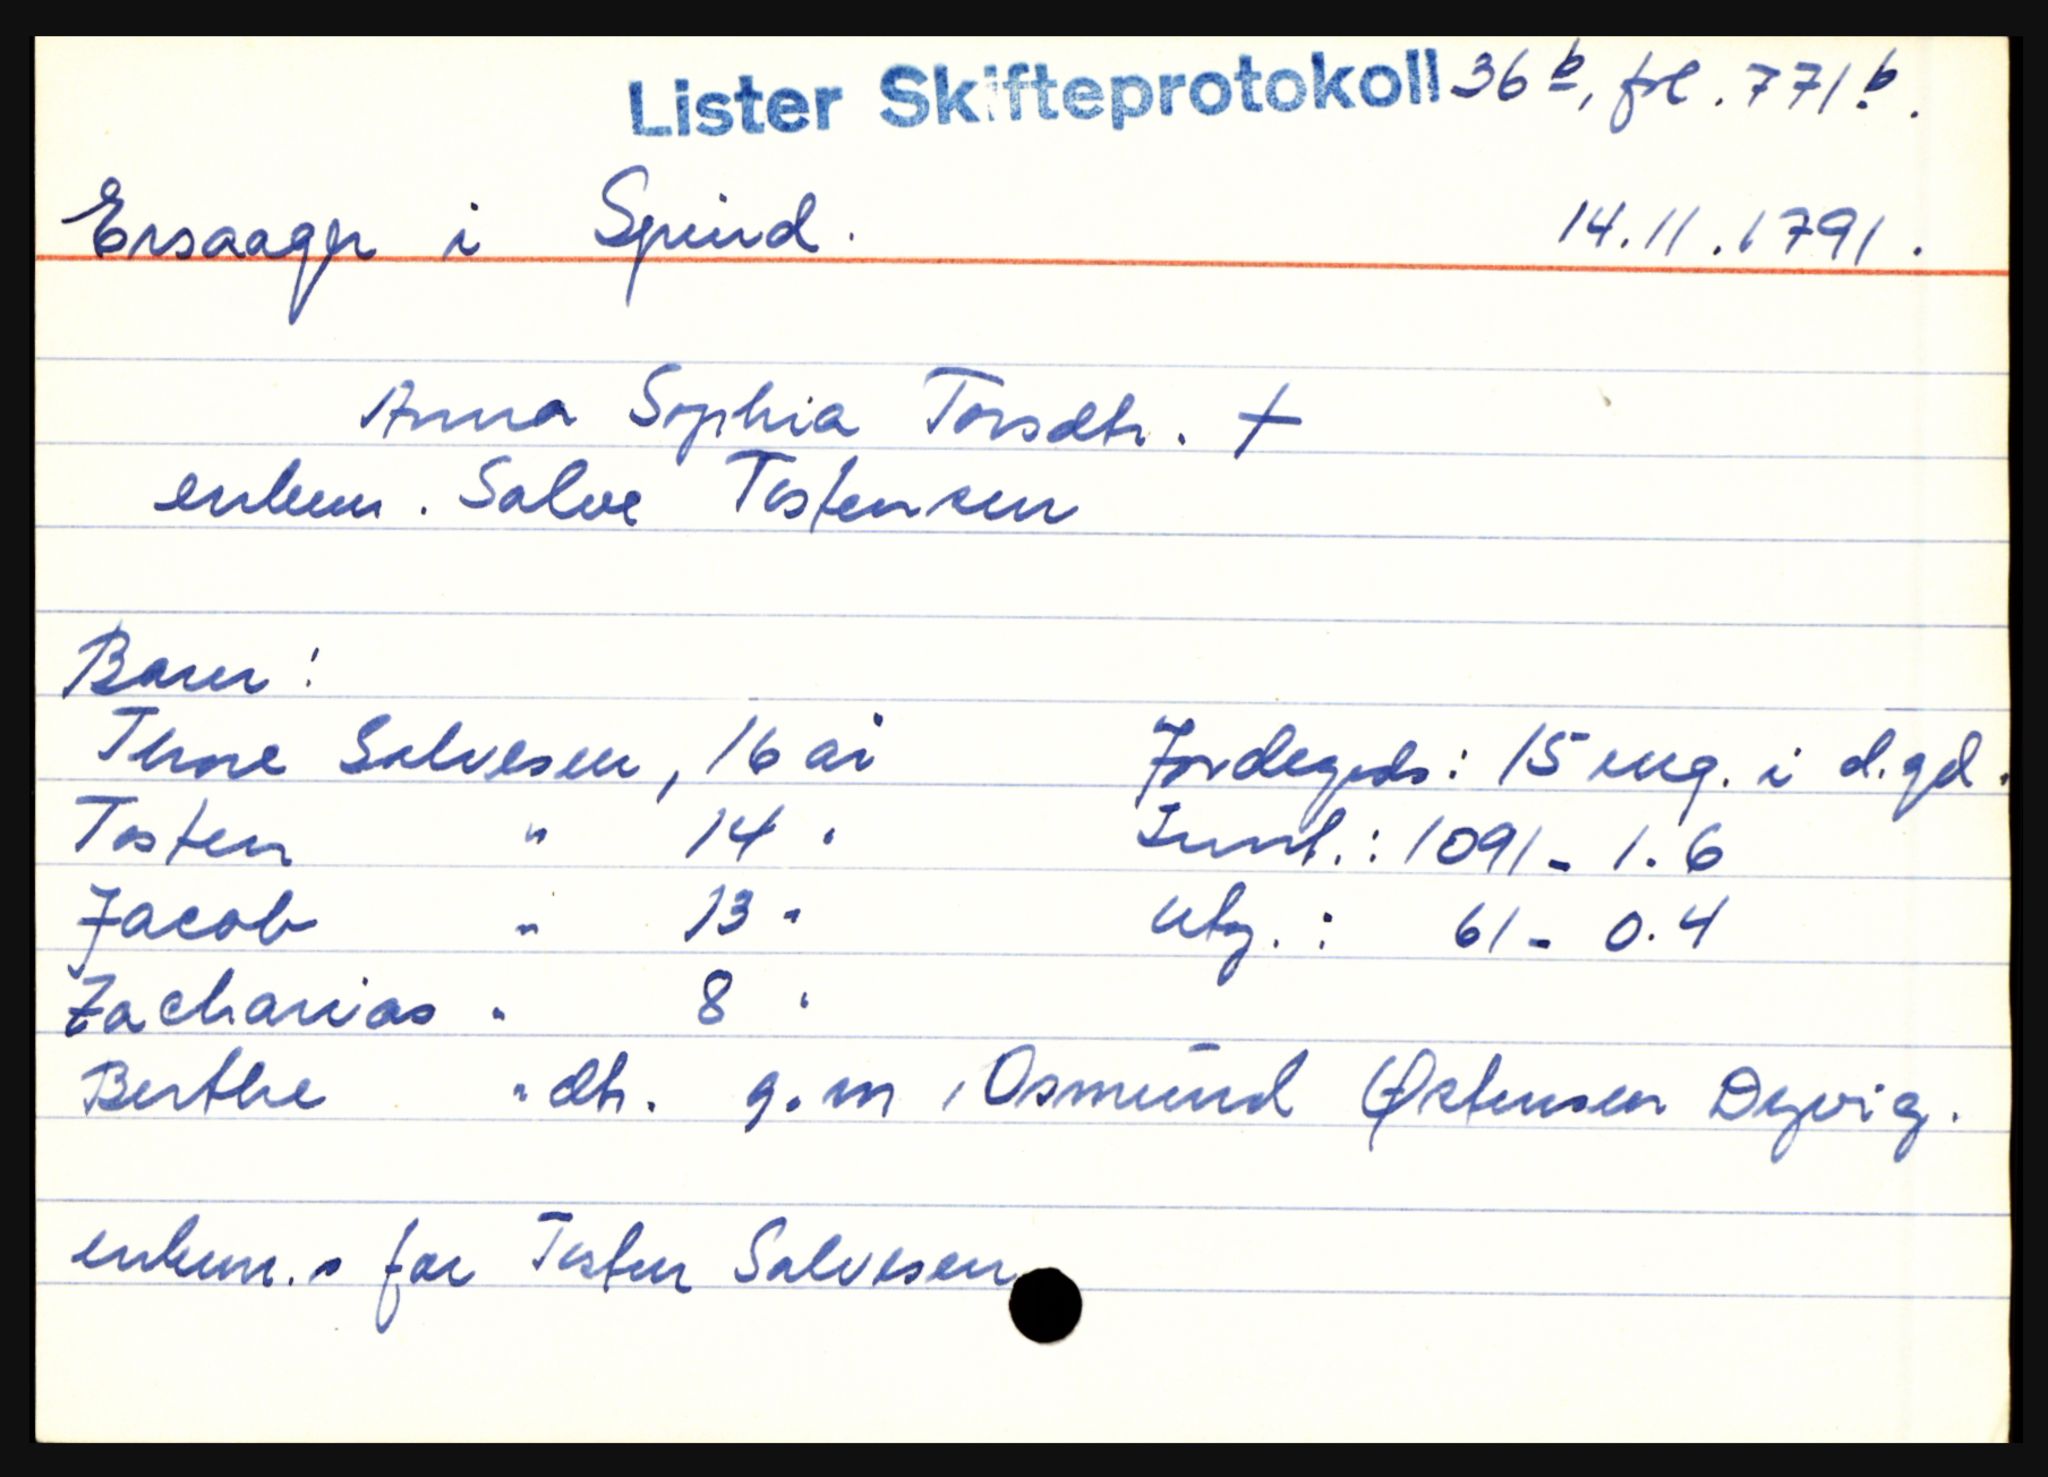 Lister Skifteprotokoll 36 b, fol. 771 b.
Ersaager i Spind. 14.11.1791.
Anna Sophia Torsdtr. †
enkem. Salve Tostensen
Barn:
Thore Salvesen, 16 år Jordegods: 15 eng. i d.gd.
Tosten " 14 " Innt.: 1091 - 1.6
Jacob " 13 " Utg.: 61 - 0.4
Zacharias " 8 "
Berthe " dtr. g.m. Osmund Østensen Dyvig.
enkem.s far Tosten Salvesen